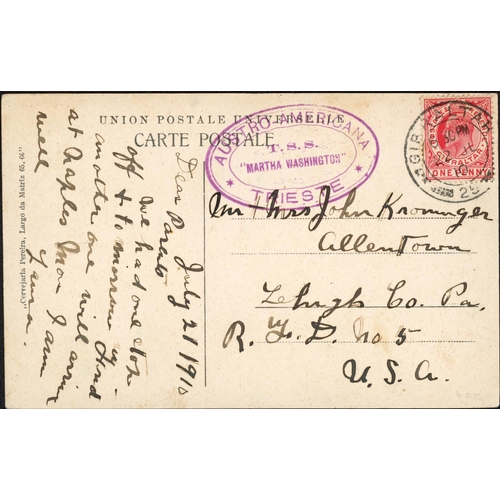 UNION POSTALE UNIVERSELLE
CARTE POSTALE
AUSTRO-AMERICANA
T.S.S.
"MARTHA WASHINGTON"
* TRIESTE *
GIBRALTAR
GIBRALTAR
ONE PENNY
25
July 21 1910
Dear Parents
We had one stop
off & to-morrow
another one will
at Naples Mon I am
well
Laura.
Mr & Mrs John Kroninger
Allentown
Lehigh Co. Pa.
R. F. D. No 5
U. S. A.
"Cervejaria Pereira, Largo da Matriz 65, 66"